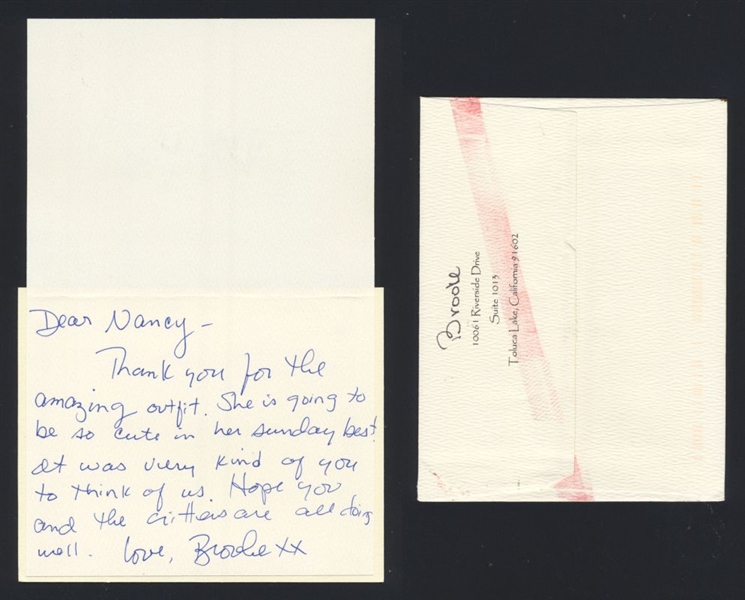 Dear Nancy -
Thank you for the
amazing outfit. She is going to
be so cute in her sunday best!
It was very kind of you
to think of us. Hope you
and the critters are all doing
well. Love, Brooke xx
Brooke
10061 Riverside Drive
Suite 1013
Toluca Lake, California 91602